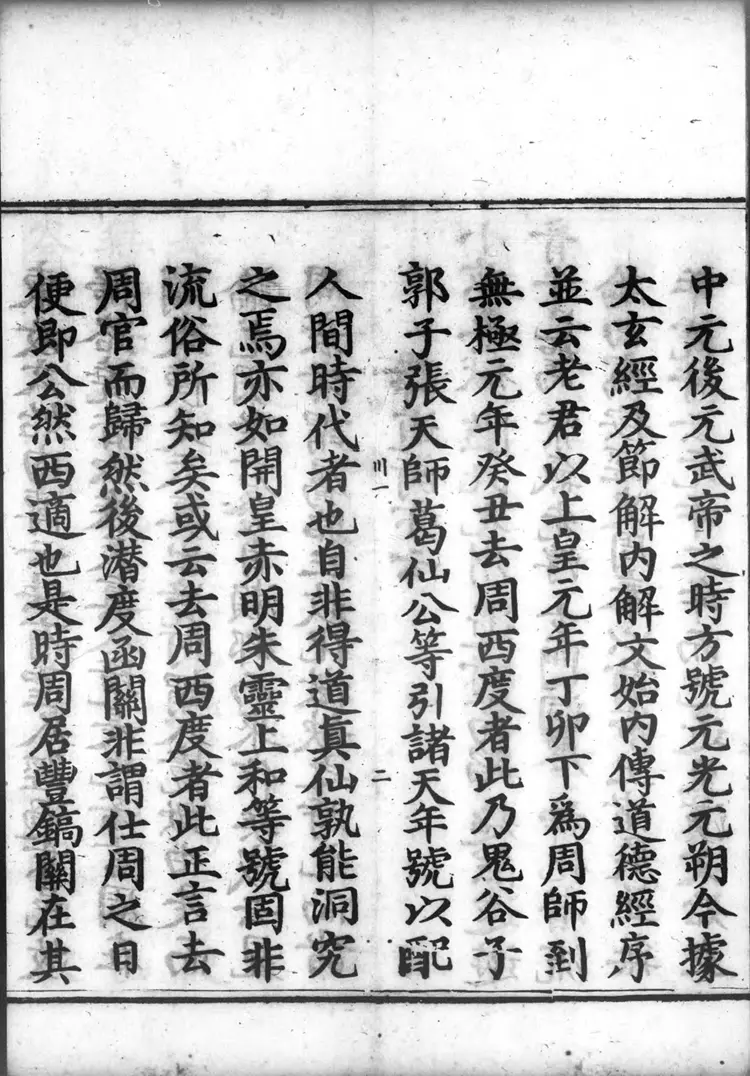 中元後元武帝之時方號元光元朔今據
太玄經及節解内解文始内傳道德經序
並云老君以上皇元年丁卯下爲周師到
無極元年癸丑去周西度者此乃鬼谷子
郭子張天師葛仙公等引諸天年號以配
川一
二
人間時代者也自非得道真仙孰能洞究
之焉亦如開皇赤明朱靈上和等號固非
流俗所知矣或云去周西度者此正言去
周官而歸然後潜度函關非謂仕周之日
便即公然西適也是時周居豐鎬關在其